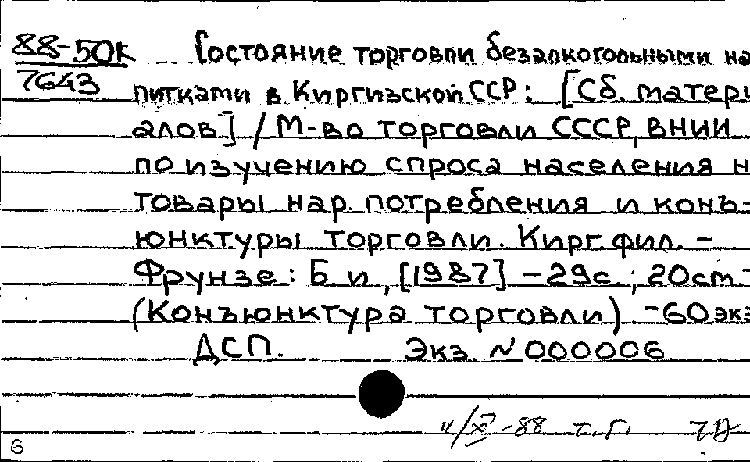 88-50к
7643
Состояние торговли безалкогольными на
питками в Киргизской ССР: [Сб. матери
алов] / М-во торговли СССР, ВНИИ
по изучению спроса населения н
товары нар. потребления и конъ-
юнктуры торговли. Кирг. фил. –
Фрунзе: Б и, [1987] – 29с.; 20см –
(Конъюнктура торговли) – 60 экз
ДСП. Экз. № 000006
-88 т. Г.
6